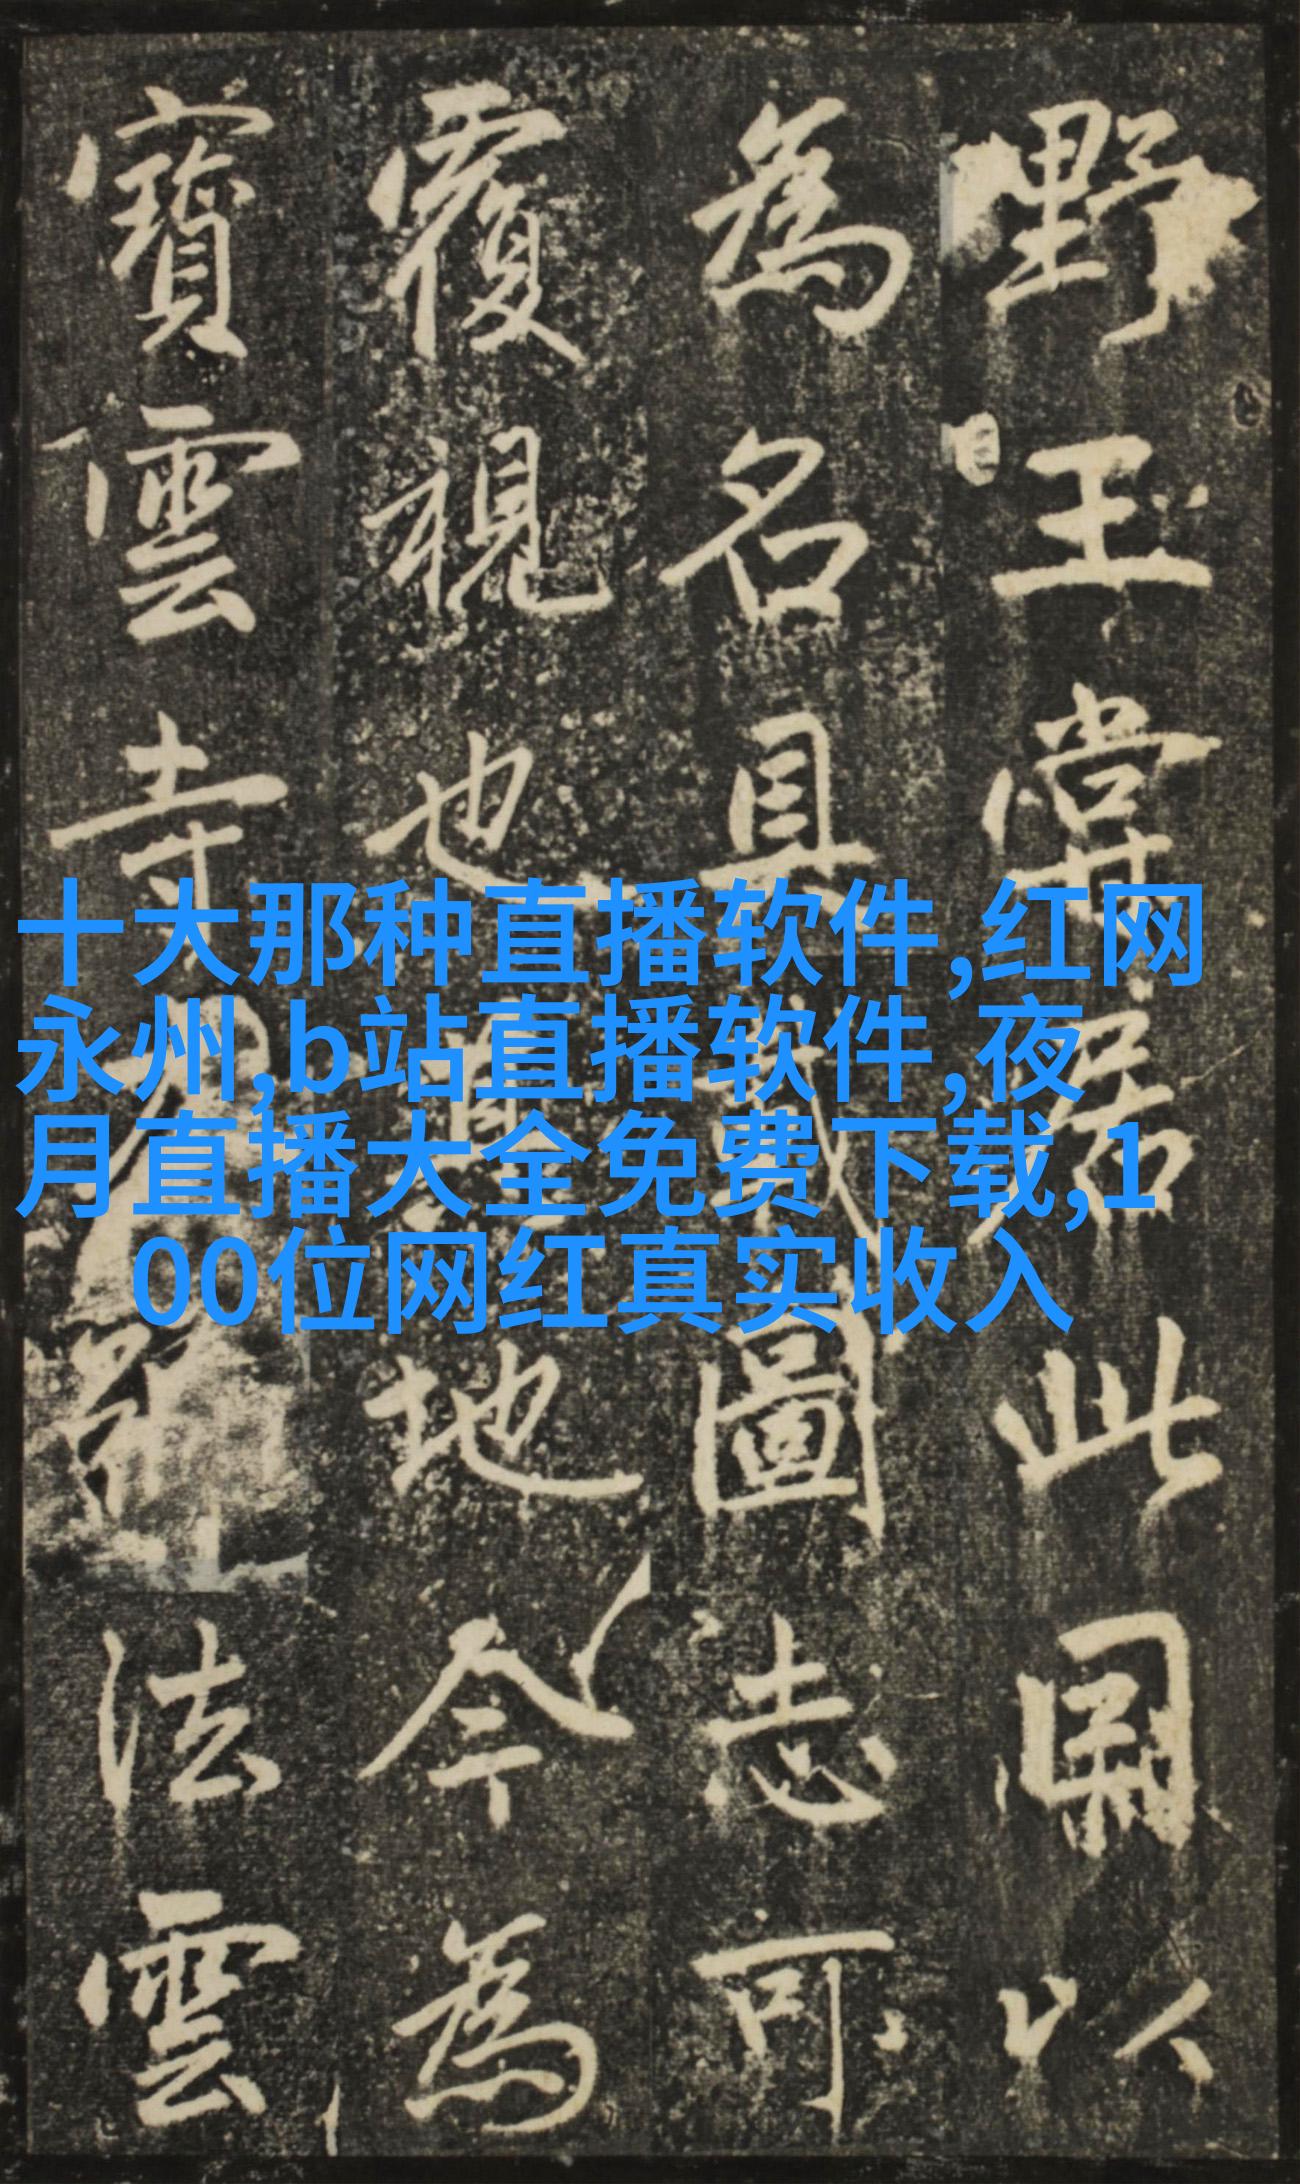 野王嘗居此因以
為名具載圖志可
覆視也其地今為
寶雲寺法雲
十大那种直播软件,红网
永州,b站直播软件,夜
月直播大全免费下载,1
00位网红真实收入